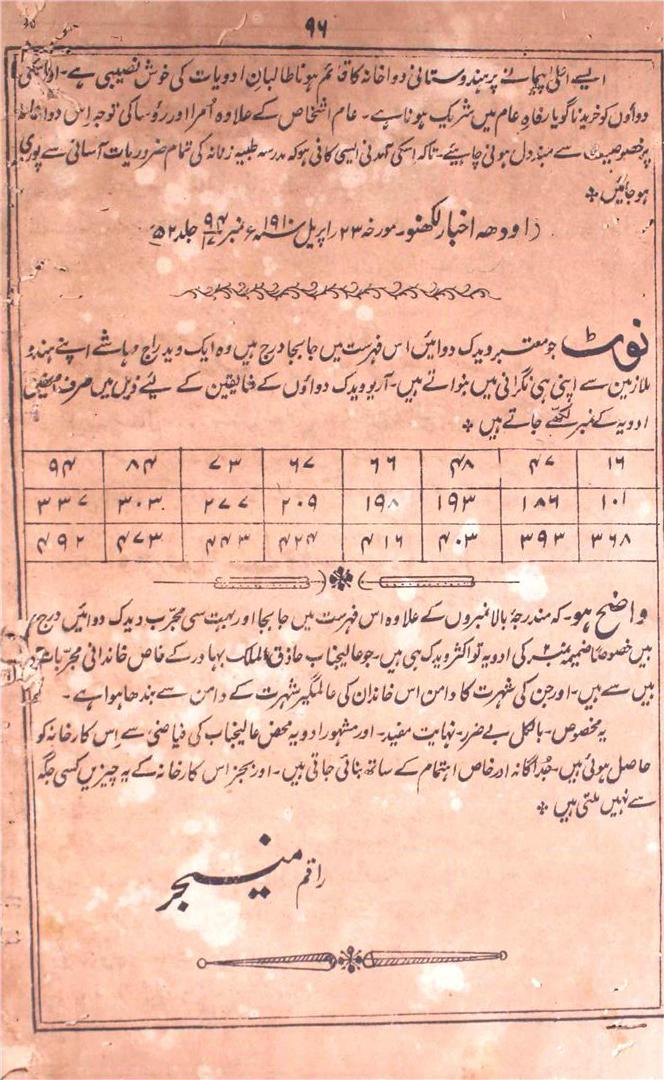 ۹۶
ایسے اعلیٰ پیمانے پر ہندوستانی دواخانہ کا قائم ہونا طالبانِ ادویات کی خوش نصیبی ہے۔ اور اسکی
دواؤں کو خریدنا گویا رفاہِ عام میں شریک ہونا ہے۔ عام اشخاص کے علاوہ اُمرا اور رؤسا کی توجہ اِس دواخانہ
پر خصوصیت سے مبذول ہونی چاہیئے۔ تاکہ اسکی آمدنی ایسی کافی ہو کہ مدرسہ طبیہ زنانہ کی تمام ضروریات آسانی سے پوری
ہو جائیں *
(اودھ اخبار لکھنو۔ مورخہ ۲۳ اپریل سنہ ۱۹۱۰ء نمبر ۹۴/۱۷ جلد ۵۲)
نوٹ جو معتبر ویدک دوائیں اس فہرست میں جابجا درج ہیں وہ ایک وید راج مہاشے اپنے ہندو
ملازمین سے اپنی ہی نگرانی میں بنواتے ہیں۔ آریوویدک دواؤں کے شائقین کے لئے ذیل میں صرف بعض
ادویہ کے نمبر لکھے جاتے ہیں *
۱۶ ۴۷ ۴۸ ۶۶ ۶۷ ۷۳ ۸۴ ۹۴
۱۰۱ ۱۸۶ ۱۹۳ ۱۹۸ ۲۰۹ ۲۷۷ ۳۰۳ ۳۳۷
۳۶۸ ۳۹۳ ۴۰۳ ۴۱۶ ۴۲۴ ۴۴۳ ۴۷۳ ۴۹۲
واضح ہو۔ کہ مندرجۂ بالا نمبروں کے علاوہ اس فہرست میں جابجا اور بہت سی مجرّب ویدک دوائیں درج
ہیں خصوصاً ضمیمہ نمبر ۲ کی ادویہ تو اکثر ویدک ہی ہیں۔ جو عالیجناب حاذق الملک بہادر کے خاص خاندانی مجربات
میں سے ہیں۔ اور جن کی شہرت کا دامن اس خاندان کی عالمگیر شہرت کے دامن سے بندھا ہوا ہے۔
یہ مخصوص۔ بالکل بے ضرر۔ نہایت مفید۔ اور مشہور ادویہ محض عالیجناب کی فیاضی سے اِس کارخانہ کو
حاصل ہوئی ہیں۔ جُداگانہ اور خاص اہتمام کے ساتھ بنائی جاتی ہیں۔ اور بجز اس کارخانہ کے یہ چیزیں کسی جگہ
سے نہیں ملتی ہیں *
راقم منیجر